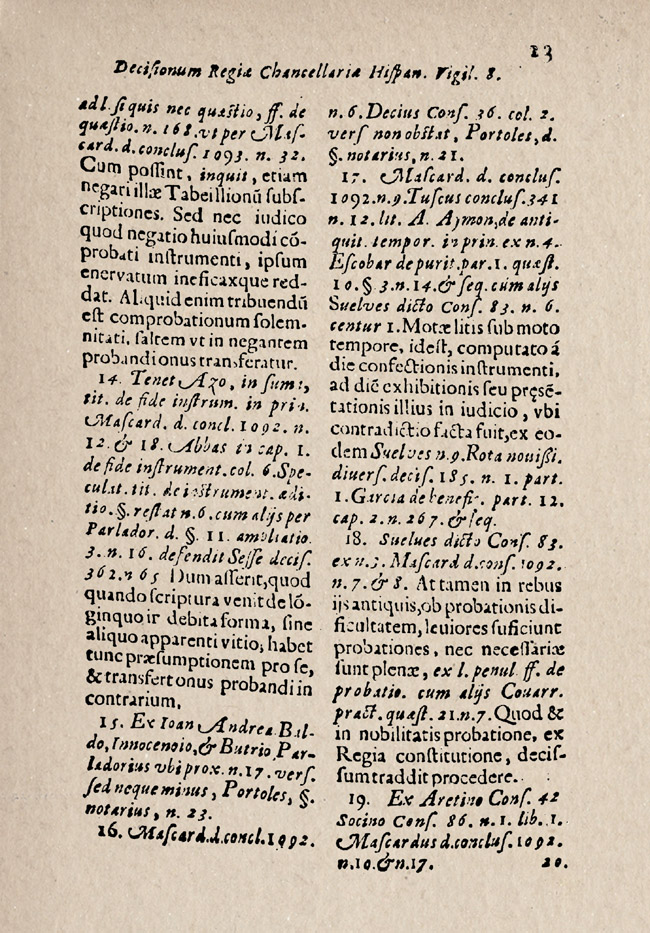 23
Decisionum Regiæ Chancellariæ Hispan. Vigil. 8.
ad l. si quis nec quæstio, ff. de
quæstio. n. 168. vt per Mas-
card. d. conclus. 1093. n. 32.
Cum possint, inquit, etiam
negari illæ Tabellionũ subs-
criptiones. Sed nec iudico
quod negatio huiusmodi cõ-
probati instrumenti, ipsum
enervatum ineficaxque red-
dat. Aliquid enim tribuendũ
est comprobationum solem-
nitati, saltem vt in negantem
probandi onus transferatur.
14. Tenet Azo, in sum:,
tit. de fide instrum. in prin.
Mascard. d. concl. 1092. n.
12. & 18. Abbas in cap. 1.
de fide instrument. col. 6. Spe-
culat. tit. de instrument. ædi-
tio. §. restat n. 6. cum alijs per
Parlador. d. §. 11. ambliatio
3. n. 16. defendit Sesse decis.
362. n 65 Dum asserit, quod
quando scriptura venit de lõ-
ginquo ir debita forma, sine
aliquo apparenti vitio, habet
tunc præsumptionem pro se,
& transfert onus probandi in
contrarium.
15. Ex Ioan Andrea Bal-
do, Innocenoio, & Butrio Par-
ladorius vbi prox. n. 17. vers.
sed neque minus, Portoles, §.
notarius, n. 23.
16. Mascard. d. concl. 1092.
n. 6. Decius Cons. 36. col. 2.
vers non obstat, Portoles, d.
§. notarius, n. 21.
17. Mascard. d. conclus.
1092. n. 9. Tuscus conclus. 341
n. 12. lit. A. Aymon, de anti-
quit. tempor. in prin. ex n. 4.
Escobar de purit. par. 1. quæst.
10. §. 3. n. 14. & seq. cum alijs
Suelves dicto Cons. 83. n. 6.
centur 1. Motæ litis sub moto
tempore, idest, computato á
die confectionis instrumenti,
ad diẽ exhibitionis seu pręsẽ-
tationis illius in iudicio, vbi
contradictio facta fuit, ex eo-
dem Suelves n. 9. Rota novissi.
divers. decis. 185. n. 1. part.
1. Garcia de benefic. part. 12.
cap. 2. n. 267. & seq.
18. Suelues dicto Cons. 83.
ex n. 3. Mascard d. cons. 1092.
n. 7. & 8. Attamen in rebus
ijs antiquis, ob probationis di-
ficultatem, leuiores suficiunt
probationes, nec necessariæ
sunt plenæ, ex l. penul. ff. de
probatio. cum alijs Couarr.
pract. quæst. 21. n. 7. Quod &
in nobilitatis probatione, ex
Regia constitutione, decis-
sum traddit procedere.
19. Ex Aretino Cons. 42
Socino Cons. 86. n. 1. lib. 1.
Mascardus d. conclus. 1092.
n. 10. & n. 17.
20.